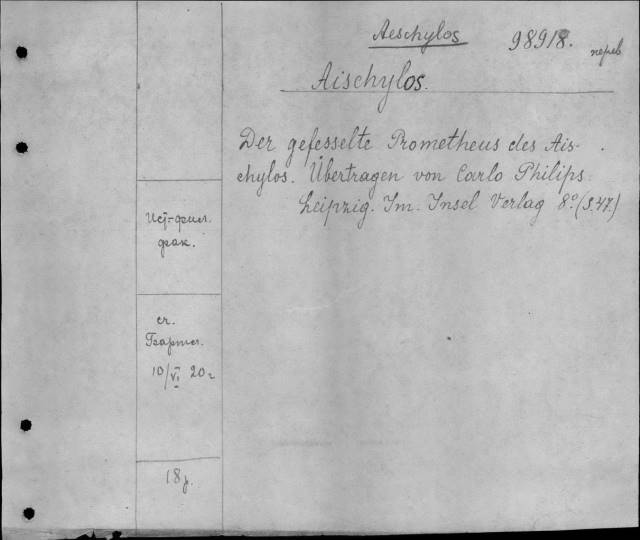 Aeschylos
98918.
переб
Aischylos.
Der gefesselte Prometheus des Ais-
chylos. Übertragen von Carlo Philips
Leipzig. Im. Insel Verlag 8° (S.47.)
Ист-фил.
фак.
ст.
10/VI 20г
18р.